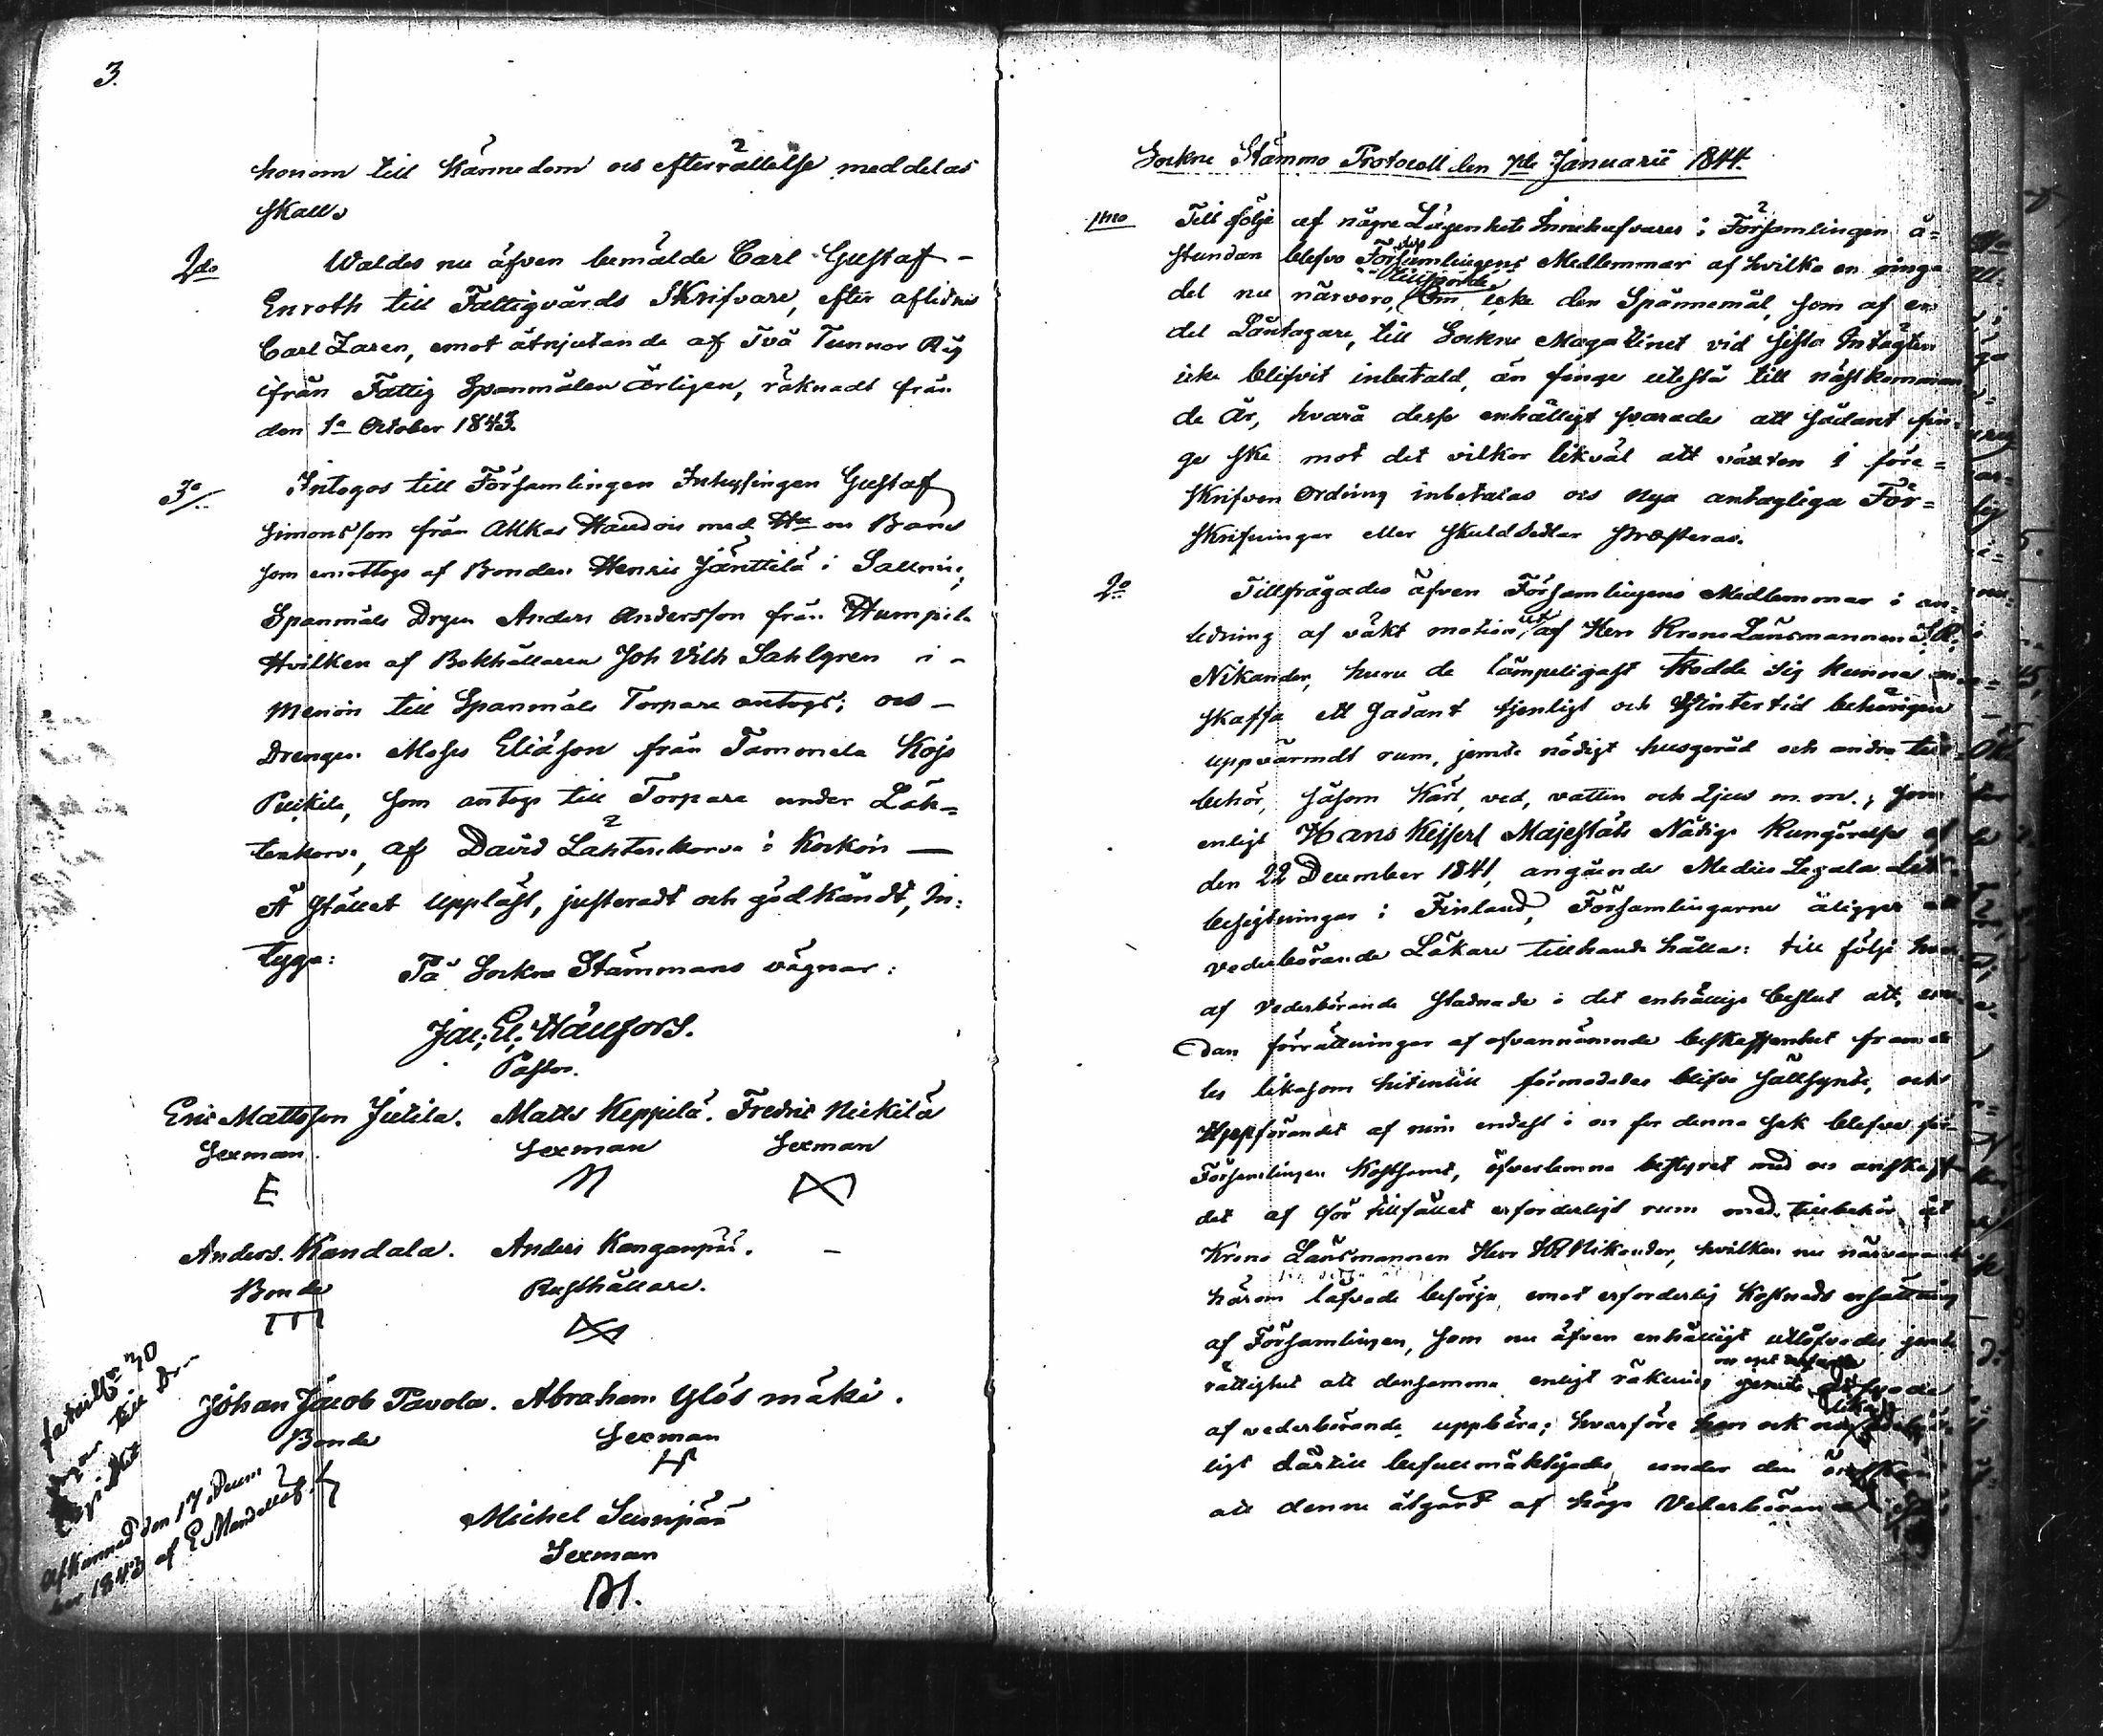 3.
honom till kännedom och efterrättelse meddelas
skall.
2do Waldes nu äfven bemälde Carl Gustaf -
Enroth till Fattigvårds Skrifvare, efter aflidne
Carl Zaren, emot åtnjutande af Två Tunnor Råg
ifrån Fattig Spanmålen årligen, räknadt från
den 1a October 1843.
3o/.. Intogos till Församlingen Inhysingen Gustaf
Simonsson från Akkas med Hu och Barn
som emottogs af Bonden Henric Jänttilä i Sallmi;
Spanmåls Drgen Anders Andersson från Humpila
Hvilken af Bokhållaren Joh Vilh Sahlgren i -
Menoin till Spanmåls Torpare antogs; och -
Drengen Moses Eliäson från Tammela Kojo
som antogs till Torpare under Läh=
tenkorva, af David Lähtenkorva i Korkön —
Å stället uppläst, justeradt och godkändt, In:
tyga:
På Sockne Stämmans vägnar:
Jac. El. Hällfors.
Pastor.
Eric Mattsson Jutila. Matts Keppilä. Fredric Nickilä
Sexman Sexman Sexman
E M
Anders Kandala. Anders Kanganpää. -
Bonde Rusthållare.
Johan Jacob Pavola. Abraham Ylösmäki.
Bonde Sexman
Michel Sumpää
Sexman
M.
afkunnad den 17 Decem
ber 1843 af
Sockne Stämmo Protocoll den 7de Januarii 1844.
1mo Till följe af några Lägenhets Innehafvares i Församlingen å=
stundan blefvo Församlingens Medlemmar af hvilka en ringa
del nu närvoro, tillspordes Om icke den Spannemål, som af en
del Låntagare, till Sockne Magazinet vid sista Intägten
icke blifvit inbetald, än finge utestå till nästkomman
de År, hvarå desse enhälligt svarade att sådant fin=
ge ske mot det vilkor likväl att växten i före=
skrifven Ordning inbetalas och nya antagliga För=
skrifningar eller Skuldsedlar præsteras.
2o Tillfrågades äfven Församlingens Medlemmar i an=
ledning af väkt motion utaf Herr Krono Länsmannen H. R.
Nikander, huru de lämpeligast trodde sig kunna an
skaffa ett sådant tjenligt och Vintertid behörigen
uppvärmdt rum, jemte nödigt husgeråd och andra till
behör, såsom Kärl, ved, vatten och Ljus m.m., som
enligt Hans Kejserl Majestäts Nådige Kungörelse af
den 22 December 1841, angående Medico Legala Lik
besigtningar i Finland, Församlingarne åligger att
vederbörande Läkare tillhanda hålla: till följe hvar
af Vederbörande stadnade i det enhällige beslut att, eme
dan förrättningar af ofvannämnde beskaffenhet framde
les likasom hitintill förmodades blifva sällsynte, och
Uppförandet af rum endast i och för denna sak blefve för
Församlingen kostsamt, öfverlemna bestyret med och anskaff
det af för tillfället erforderligt rum med tillbehör åt
Krono Länsmannen Herr HR Nikander, hvilken nu närvarande
härom låfvade besörja, emot erforderlig kostnads ersättning
af Församlingen, som nu äfven enhälligt utlofvades jemte
rättighet att densamma enligt räkning
af vederbörande uppbära; hvarföre han ock
ligt därtill befullmäktigades under den
att denne åtgärd af höge Vederbörande